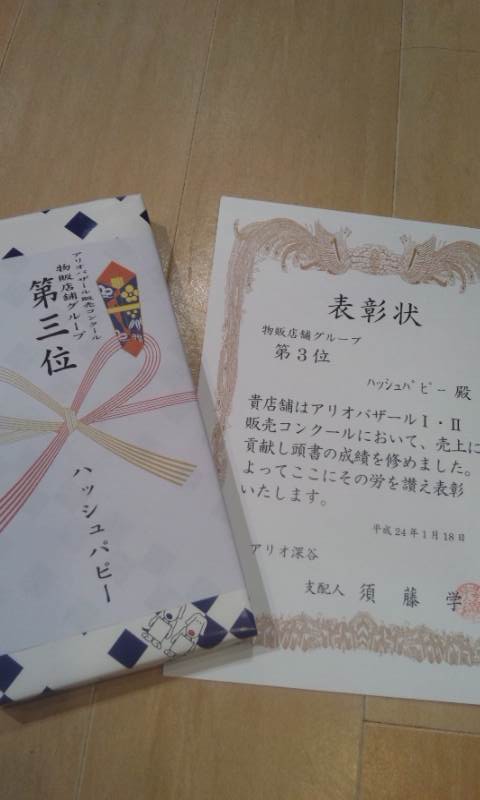 アリオバザール販売コンクール
物販店舗グループ
第三位
ハッシュパピー
表彰状
物販店舗グループ
第3位
ﾊｯｼｭﾊﾟﾋﾟｰ 殿
貴店舗はアリオバザールⅠ・Ⅱ
販売コンクールにおいて、売上に
貢献し頭書の成績を修めました。
よってここにその労を讃え表彰
いたします。
平成24年1月18日
アリオ深谷
支配人 須藤 学